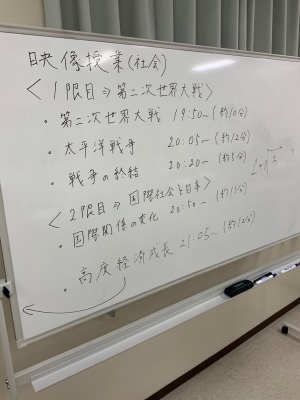 映像授業(社会)
<1限目⇒第二次世界大戦>
・第二次世界大戦 19:50〜(約10分)
・太平洋戦争 20:05〜(約12分)
・戦争の終結 20:20〜(約5分)
<2限目⇒国際社会と日本>
・国際関係の変化 20:50〜(約13分)
・高度経済成長 21:05〜(約12分)